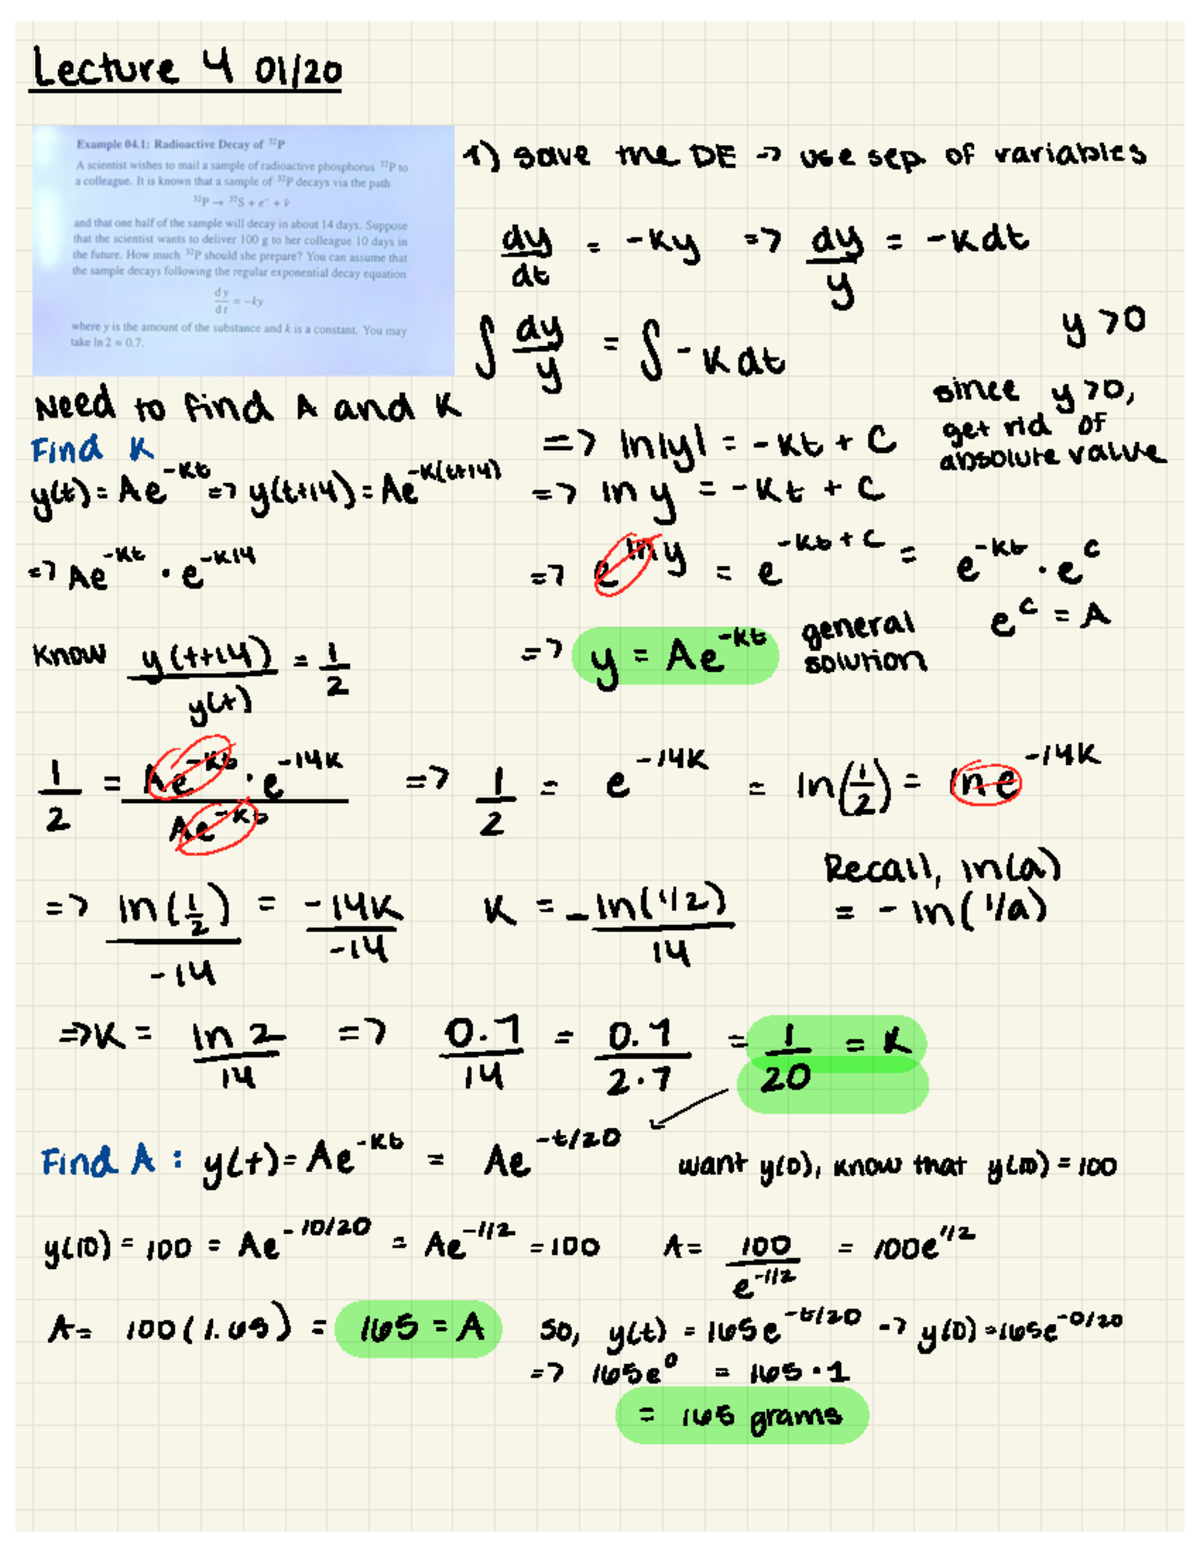 Lecture 4 01/20
Example 04.1: Radioactive Decay of ³²P
A scientist wishes to mail a sample of radioactive phosphorus ³²P to
a colleague. It is known that a sample of ³²P decays via the path
³²P → ³²S + e⁻ + ν̄
and that one half of the sample will decay in about 14 days. Suppose
that the scientist wants to deliver 100 g to her colleague 10 days in
the future. How much ³²P should she prepare? You can assume that
the sample decays following the regular exponential decay equation
dy/dt = -ky
where y is the amount of the substance and k is a constant. You may
take ln 2 ≈ 0.7.
1) solve the DE → use sep. of variables
dy/dt = -Ky => dy/y = -Kdt
y >0
∫ dy/y = ∫ -Kdt
since y >0,
get rid of
absolute value
=> ln|y| = -Kt + C
=> ln y = -Kt + C
=> e^(ln y) = e^(-Kt + C) = e^(-Kt) · e^C
e^C = A
=> y = Ae^(-Kt) general
solution
Need to find A and K
Find K
y(t) = Ae^(-Kt) => y(t+14) = Ae^(-K(t+14))
=> Ae^(-Kt) · e^(-K14)
Know y(t+14)/y(t) = 1/2
1/2 = Ae^(-Kt) · e^(-14K) / Ae^(-Kt) => 1/2 = e^(-14K) = ln(1/2) = ln e^(-14K)
Recall, ln(a)
= - ln(1/a)
=> ln(1/2)/-14 = -14K/-14 K = -ln(1/2)/14
=> K = ln 2/14 => 0.7/14 = 0.7/2·7 = 1/20 = K
Find A : y(t) = Ae^(-Kt) = Ae^(-t/20) want y(0), know that y(10) = 100
y(10) = 100 = Ae^(-10/20) = Ae^(-1/2) = 100 A = 100/e^(-1/2) = 100e^(1/2)
A = 100(1.65) = 165 = A so, y(t) = 165e^(-t/20) → y(0) = 165e^(-0/20)
=> 165e^0 = 165 · 1
= 165 grams